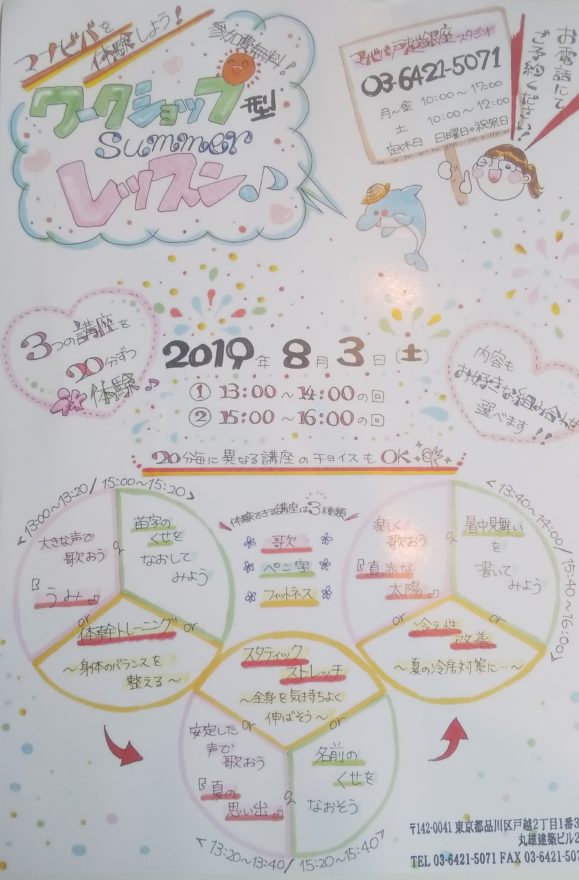 マナビバを
体験しよう！
参加費無料！
ワークショップ型
summer
レッスン♪
マナビバ戸越銀座スタジオ
03-6421-5071
月～金 10:00～17:00
土 10:00～12:00
定休日 日曜日・祝祭日
お電話にて
ご予約ください！
3つの講座を
20分ずつ
体験♪
2019年8月3日(土)
① 13:00～14:00の回
② 15:00～16:00の回
内容も
お好きな組み合わせ
選べます！！
20分毎に異なる講座のチョイスもOK
<13:00～13:20/15:00～15:20>
大きな声で
歌おう
『うみ』
or
苗字の
くせを
なおして
みよう
or
or
体幹トレーニング
～身体のバランスを
整える～
体験できる講座は3種類
歌
ペこ字
フィットネス
<13:40～14:00/15:40～16:00>
楽しく
歌おう
『真赤な
太陽』
or
暑中見舞い
を
書いて
みよう
or
or
冷え性
改善
～夏の冷房対策に…～
スタティック
ストレッチ
～全身を気持ちよく
伸ばそう～
or
or
安定した
声で
歌おう
『夏の
思い出』
or
名前の
くせを
なおそう
<13:20～13:40/15:20～15:40>
〒142-0041 東京都品川区戸越2丁目1番3
丸雄建築ビル2
TEL 03-6421-5071 FAX 03-6421-507